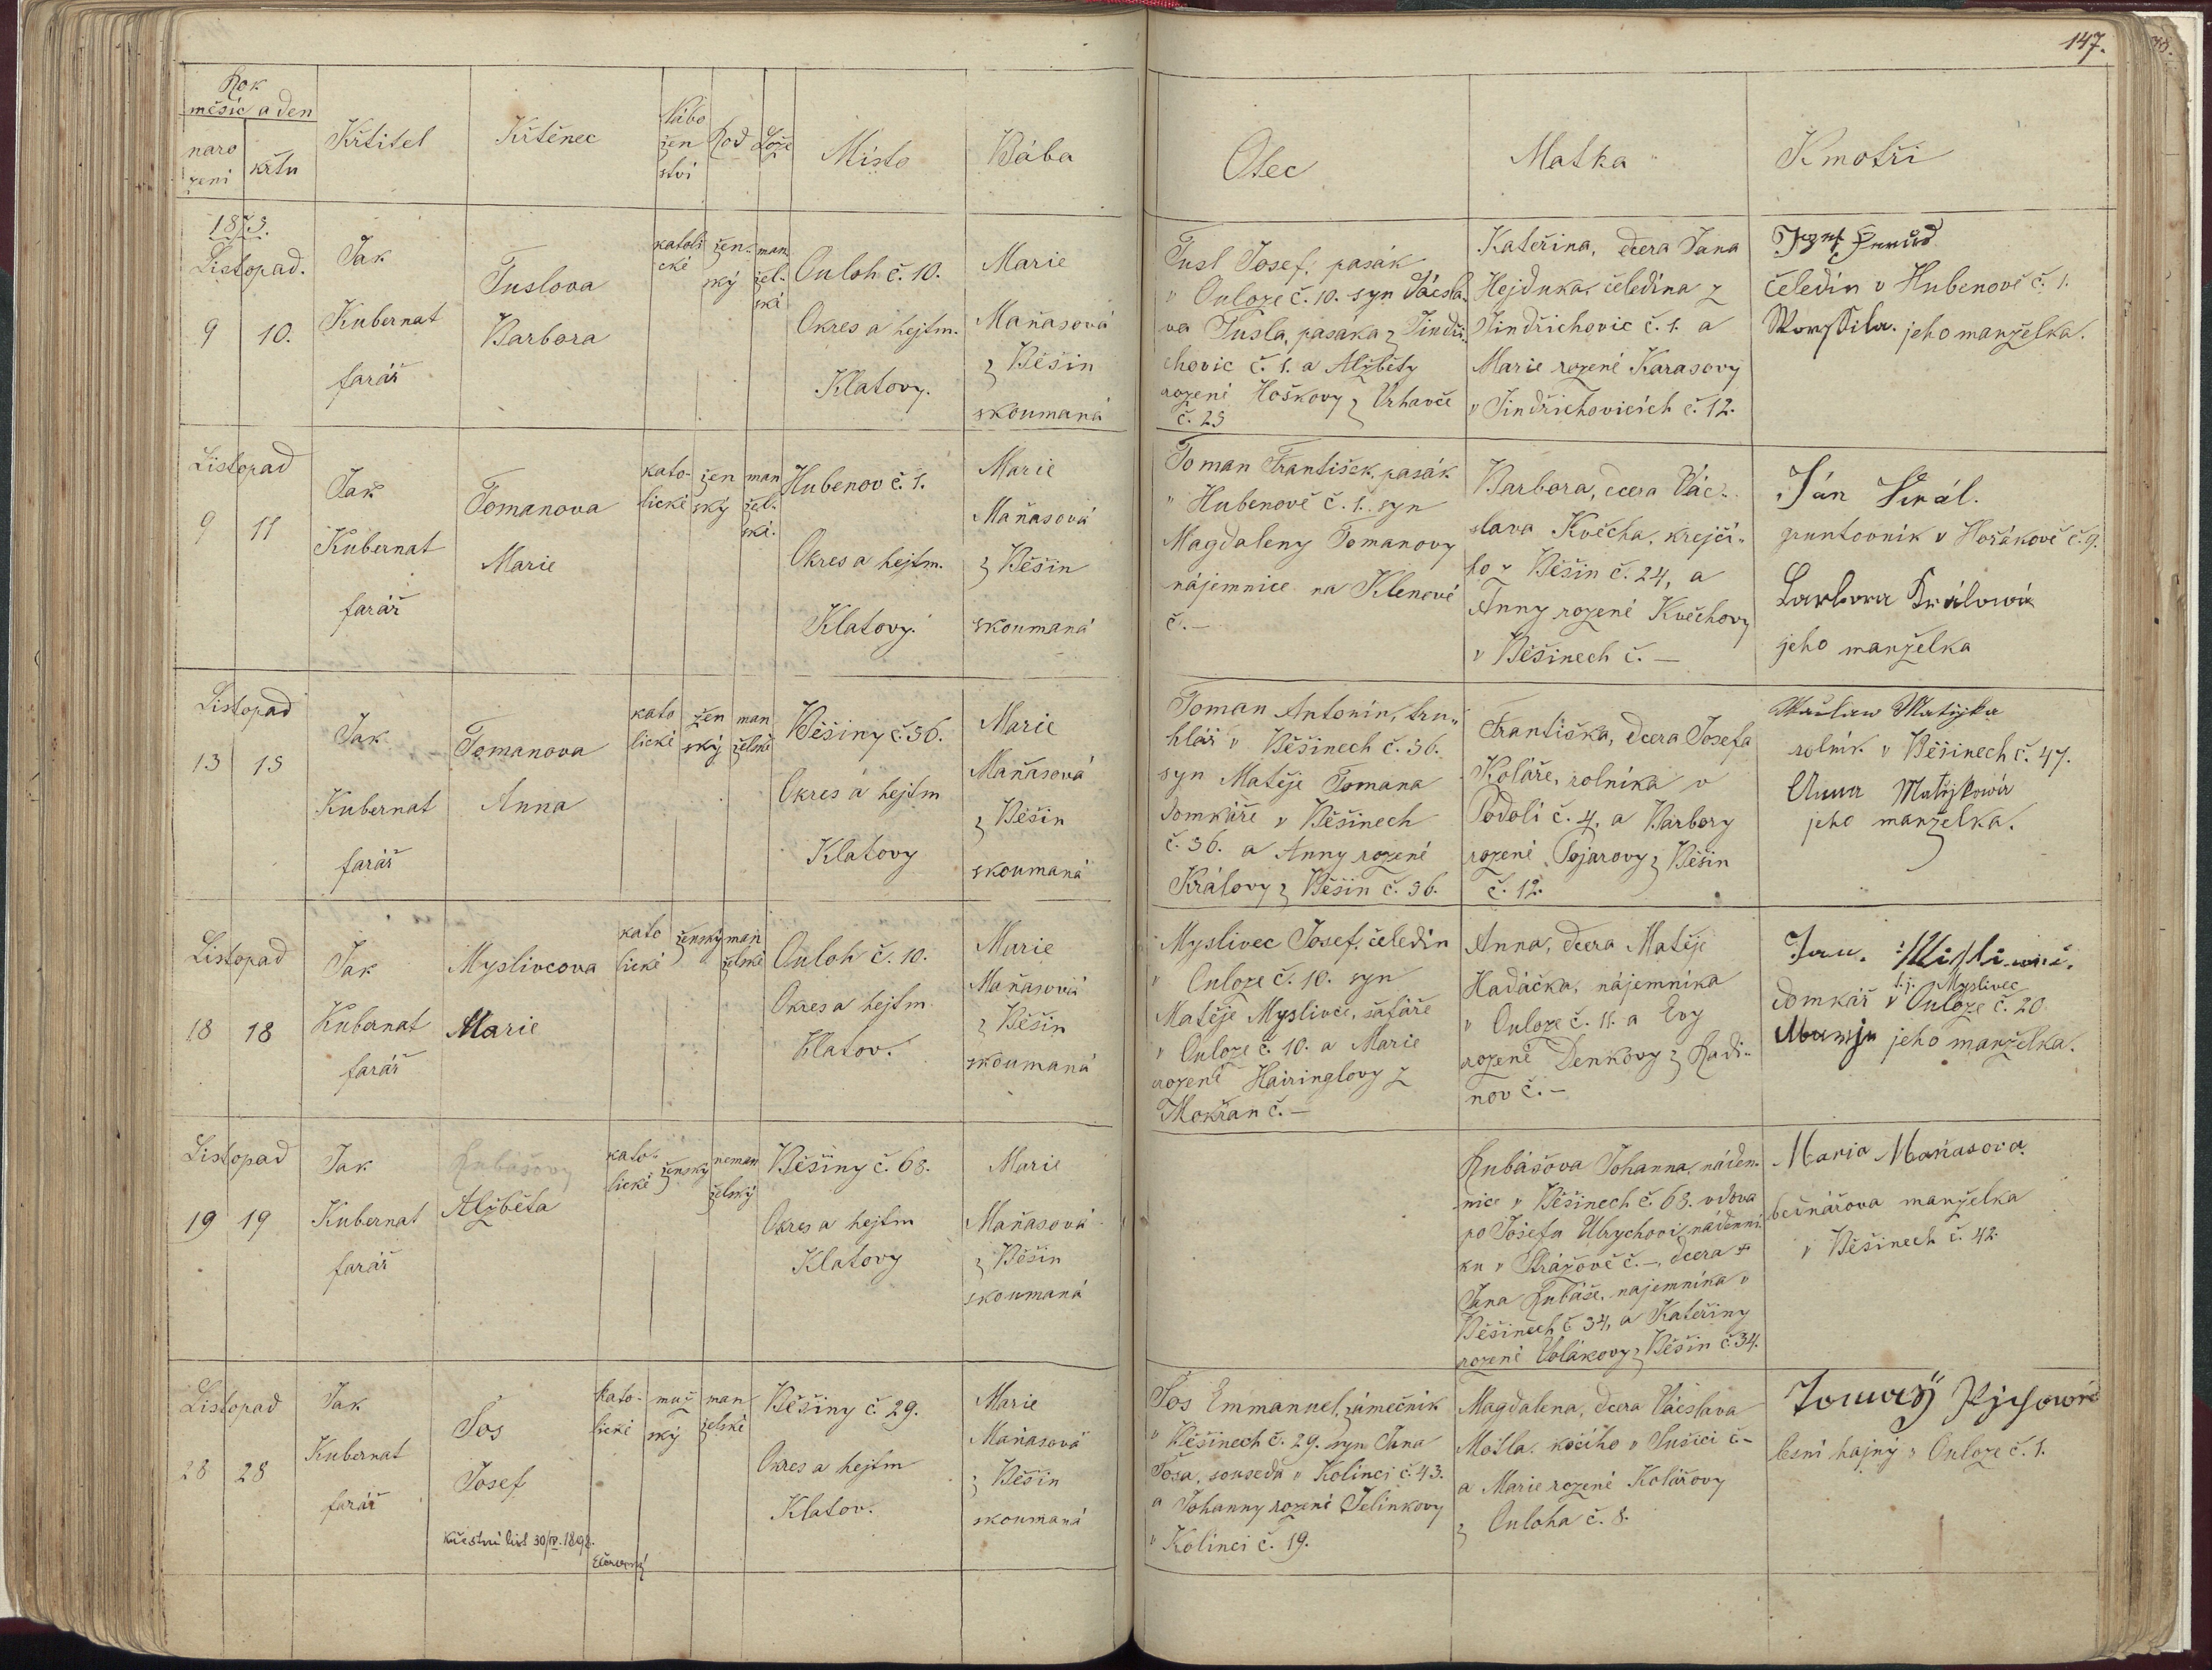 147.
Rok
měsíc a den
naro
zení
křtu
Křtitel
Křtěnec
Nábo
žen
ství
Rod
Lože
Místo
Bába
Otec
Matka
Kmotři
1873.
Listopad.
9
10.
Jak
Kubernat
farář
Tuslova
Barbora
katoli
cké
žen-
ský
man
žel-
ské
Ouloh č. 10.
Okres a hejtm.
Klatovy.
Marie
Maňasová
z Běšin
skoumaná
Tusl Josef, pasák
v Ouloze č. 10. syn Václa-
va Tusla, pasáka z Jindři-
chovic č. 1. a Alžběty
rozené Hoškovy z Vrhavče
č. 23
Kateřina, dcera Jana
Hejduka, čeledína z
Jindřichovic č. 1. a
Marie rozené Karasovy
v Jindřichovicích č. 12.
Josef
čeledín v Hubenově č. 1.
jeho manželka.
Listopad
9
11
Jak
Kubernat
farář
Tomanova
Marie
kato-
lické
žen
ský
man
žel-
ské.
Hubenov č. 1.
Okres a hejtm.
Klatovy.
Marie
Maňasová
z Běšin
skoumaná
Toman František, pasák
v Hubenově č. 1. syn
Magdaleny Tomanovy
nájemnice na Klenové
č. —
Barbora, dcera Vác-
slava Kvěcha, krejčí-
ho z Běšin č. 24, a
Anny rozené Kvěchovy
v Běšinech č. —
Ján Král.
gruntovník v Hořákově č. 9.
Barbora Králowá
jeho manželka
Listopad
13
13
Jak
Kubernat
farář
Tomanova
Anna
kato
lické
žen
ský
man
želské
Běšiny č. 36.
Okres a hejtm
Klatovy
Marie
Maňasová
z Běšin
skoumaná
Toman Antonín, tru-
hlář v Běšinech č. 36.
syn Matěje Tomana
domkáře v Běšinech
č. 36. a Anny rozené
Královy z Běšin č. 36.
Františka, dcera Josefa
Koláře, rolníka v
Podolí č. 4. a Barbory
rozené Pojarovy z Běšin
č. 12.
Wáclaw Matějka
rolník v Běšinech č. 47.
Anna Matějkowá
jeho manželka.
Listopad
18
18
Jak
Kubernat
farář
Myslivcova
Marie
kato
lické
ženský
man
želské
Ouloh č. 10.
Okres a hejtm.
Klatov.
Marie
Maňasová
z Běšin
skoumaná
Myslivec Josef, čeledín
v Ouloze č. 10. syn
Matěje Myslivce, šafáře
v Ouloze č. 10. a Marie
rozené Hairinglovy z
Mokřan č. —
Anna, dcera Matěje
Hadáčka, nájemníka
v Ouloze č. 11. a Evy
rozené Denkovy z Radi-
nov č. —
Jan.
t. j. Myslivec
domkář v Ouloze č. 20
jeho manželka.
Listopad
19
19
Jak
Kubernat
farář
Rubášovy
Alžběta
kato-
lické
ženský
neman
želský
Běšiny č. 63.
Okres a hejtm
Klatovy
Marie
Maňasová
z Běšin
skoumaná
Rubášova Johanna, náden-
nice v Běšinech č. 63. vdova
po Josefu Ulrychovi, nádenní-
ku v Strážově č. —, dcera
Jana Rubáše, nájemníka v
Běšinech č. 34, a Kateřiny
rozené Volákovy z Běšin č. 34.
Maria Maňasova.
bečnářova manželka
v Běšinech č. 42.
Listopad
28
28
Jak
Kubernat
farář
Šos
Josef
Křestní list 30/IV. 1898.
kato-
lické
muž
ský
man
želské
Běšiny č. 29.
Okres a hejtm
Klatov.
Marie
Maňasová
z Běšin
skoumaná
Šos Emmanuel, zámečník
v Běšinech č. 29. syn Jana
Šosa, souseda v Kolinci č. 43.
a Johanny rozené Jelínkovy
v Kolinci č. 19.
Magdalena, dcera Václava
Mošla, kočího v Sušici č. —
a Marie rozené Kolářovy
z Ouloha č. 8.
lesní hajný v Ouloze č. 1.